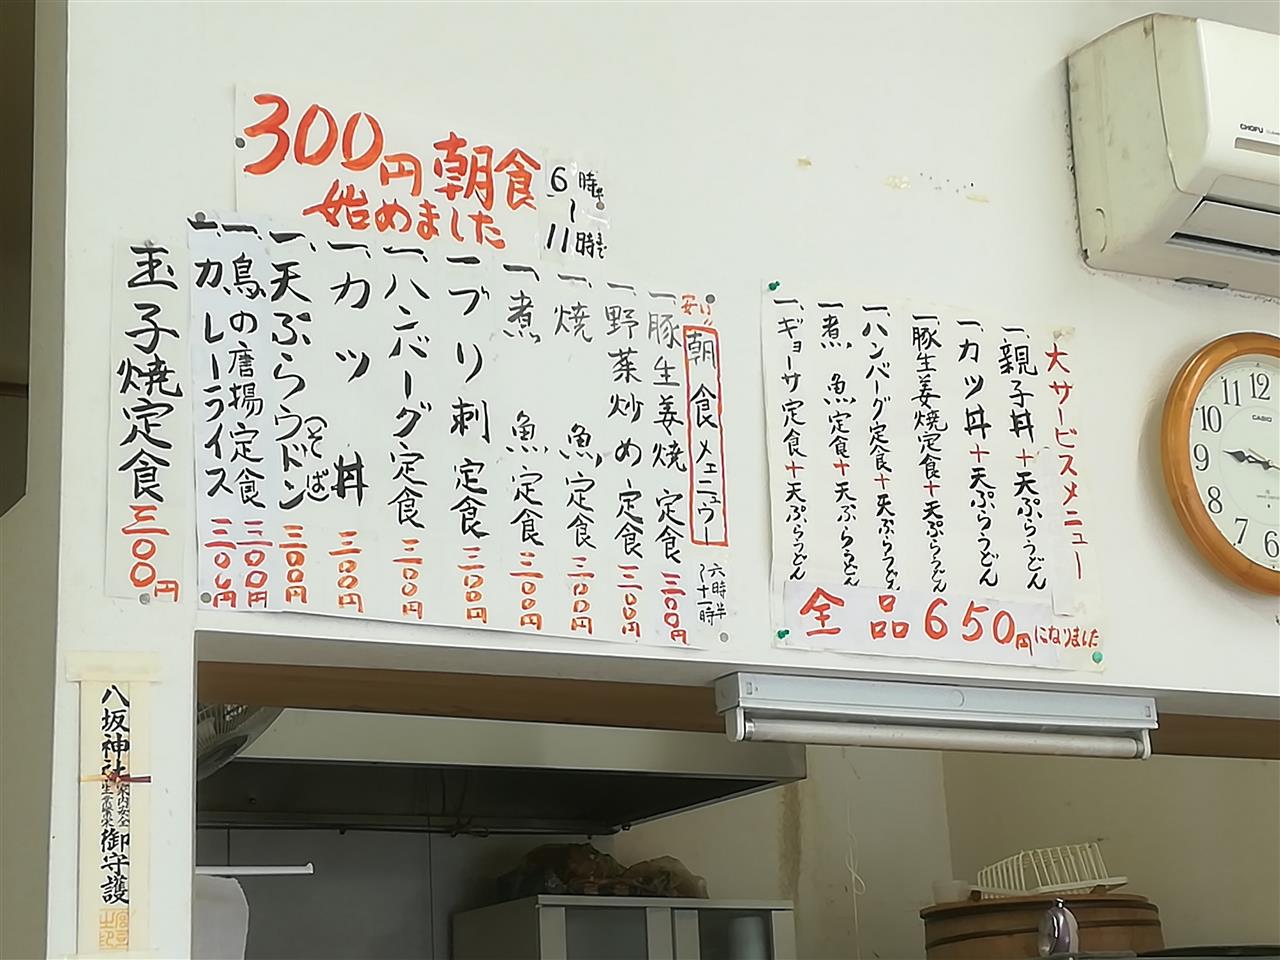 300円朝食
始めました
6時半
〜
11時まで
安い!!
朝食メニュー
六時半
〜十一時
一、豚生姜焼定食 三〇〇円
一、野菜炒め定食 三〇〇円
一、焼魚定食 三〇〇円
一、煮魚定食 三〇〇円
一、ブリ刺定食 三〇〇円
一、ハンバーグ定食 三〇〇円
一、カツ丼 三〇〇円
一、天ぷらウドン(そば) 三〇〇円
一、鳥の唐揚定食 三〇〇円
一、カレーライス 三〇〇円
玉子焼定食 三〇〇円
大サービスメニュー
一、親子丼+天ぷらうどん
一、カツ丼+天ぷらうどん
一、豚生姜焼定食+天ぷらうどん
一、ハンバーグ定食+天ぷらうどん
一、煮魚定食+天ぷらうどん
一、ギョーサ定食+天ぷらうどん
全品650円になりました
CHOFU
12
11
10
9
8
7
6
CASIO
八坂神社
家内安全
生業繁栄
御守護